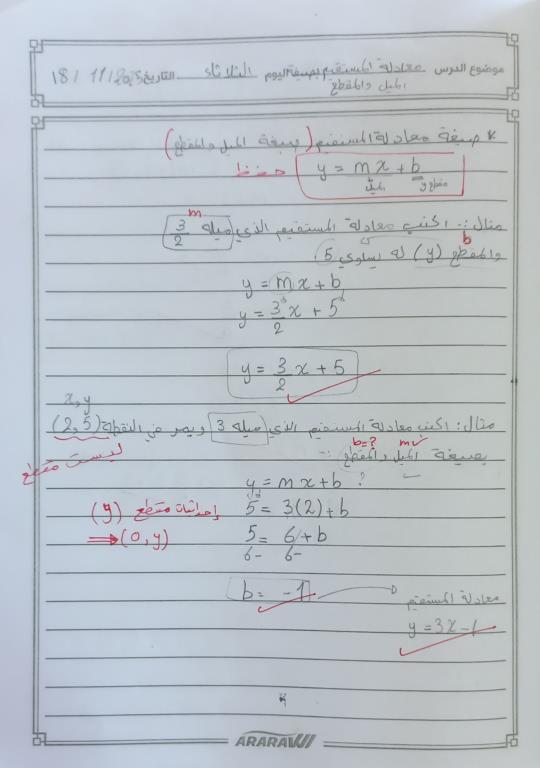 موضوع الدرس معادلة المستقيم بصيغة اليوم الثلاثاء التاريخ 18 / 11 / 2025
الميل والمقطع
* صيغة معادلة المستقيم (صيغة الميل والمقطع)
y = mx + b حفظ
الميل مقطع y
m
مثال :- اكتب معادلة المستقيم الذي ميله 3/2
b
والمقطع (y) له يساوي 5
y = mx + b
y = 3/2 x + 5
y = 3/2 x + 5
x, y
مثال : اكتب معادلة المستقيم الذي ميله 3 ويمر في النقطة (2,5)
ليست مقطع
b=? m✓
بصيغة الميل والمقطع :-
y = mx + b ?
5 = 3(2) + b
إحداثيات مقطع (y)
⇒ (0, y)
5 = 6 + b
6- 6-
b = -1
معادلة المستقيم
y = 3x - 1
ARARAWI